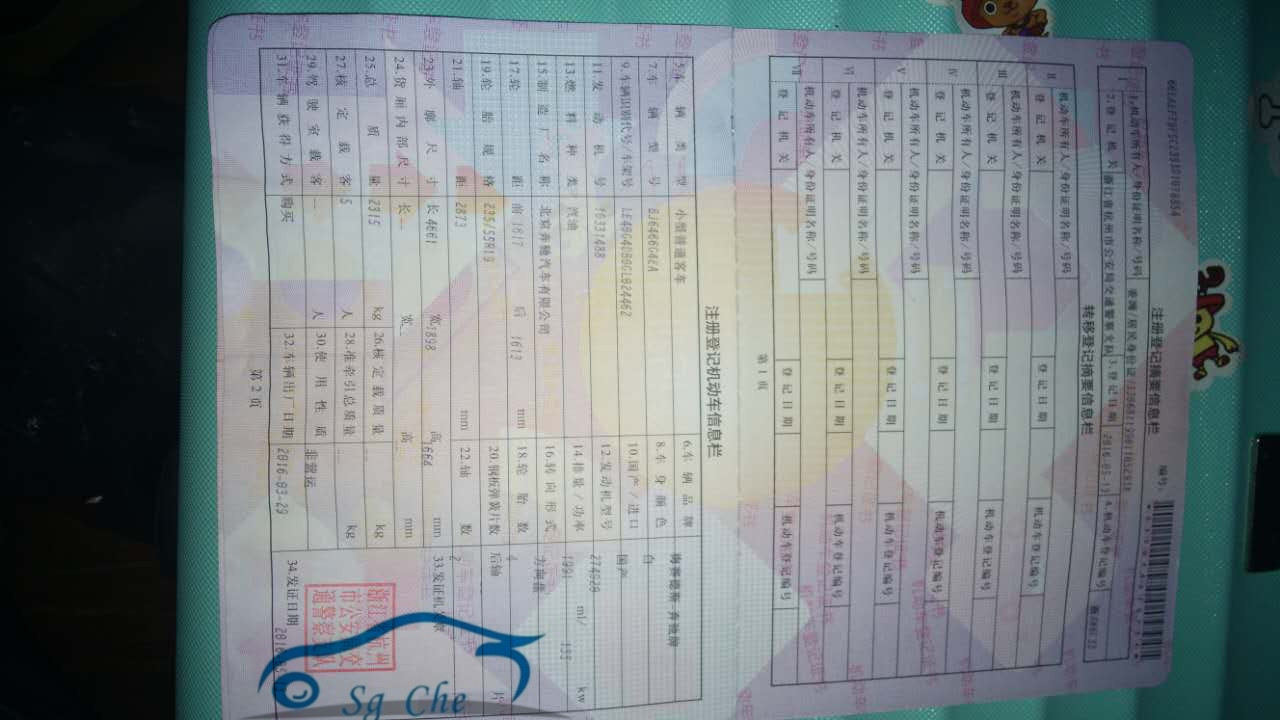 注册登记摘要信息栏
编号:
1.机动车所有人/身份证明名称/号码
2.登记机关 浙江省杭州市公安局交通警察支队 3.登记日期 2016-05-13 4.机动车登记编号
转移登记摘要信息栏
II 机动车所有人/身份证明名称/号码
登记机关 登记日期 机动车登记编号
III 机动车所有人/身份证明名称/号码
登记机关 登记日期 机动车登记编号
IV 机动车所有人/身份证明名称/号码
登记机关 登记日期 机动车登记编号
V 机动车所有人/身份证明名称/号码
登记机关 登记日期 机动车登记编号
VI 机动车所有人/身份证明名称/号码
登记机关 登记日期 机动车登记编号
VII 机动车所有人/身份证明名称/号码
登记机关 登记日期 机动车登记编号
第1页
注册登记机动车信息栏
5.车辆类型 小型普通客车 6.车辆品牌 梅赛德斯-奔驰牌
7.车辆型号 BJ6466G4EA 8.车身颜色 白
9.车辆识别代号/车架号 LE40G4DB6GL024462 10.国产/进口 国产
11.发动机号 70331488 12.发动机型号 274920
13.燃料种类 汽油 14.排量/功率 1991 ml/ 135 kw
15.制造厂名称 北京奔驰汽车有限公司 16.转向形式 方向盘
17.轮距 前 1617 后 1613 mm 18.轮胎数 4
19.轮胎规格 235/55R19 20.钢板弹簧片数 后轴 片
21.轴距 2873 mm 22.轴数 2
23.外廓尺寸 长 4661 宽 1898 高 1664 mm
24.货厢内部尺寸 长 宽 高 mm
25.总质量 2315 kg 26.核定载质量 kg
27.核定载客 5 人 28.准牵引总质量 kg
29.驾驶室载客 人 30.使用性质 非营运
31.车辆获得方式 购买 32.车辆出厂日期 2016-03-29
33.发证机关
34.发证日期
第2页
Sg Che